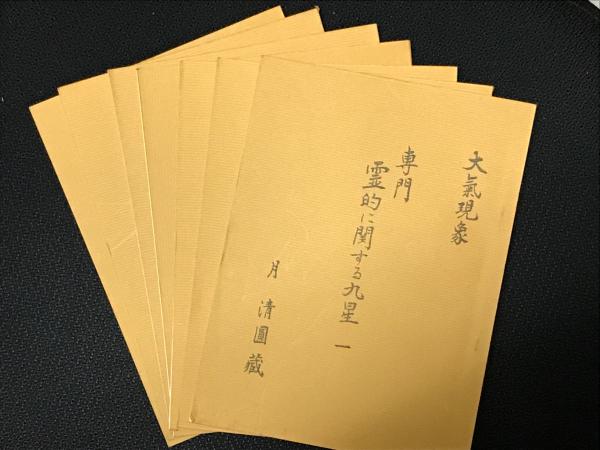 大氣現象
専門
霊的に関する九星 一
月 清圓藏